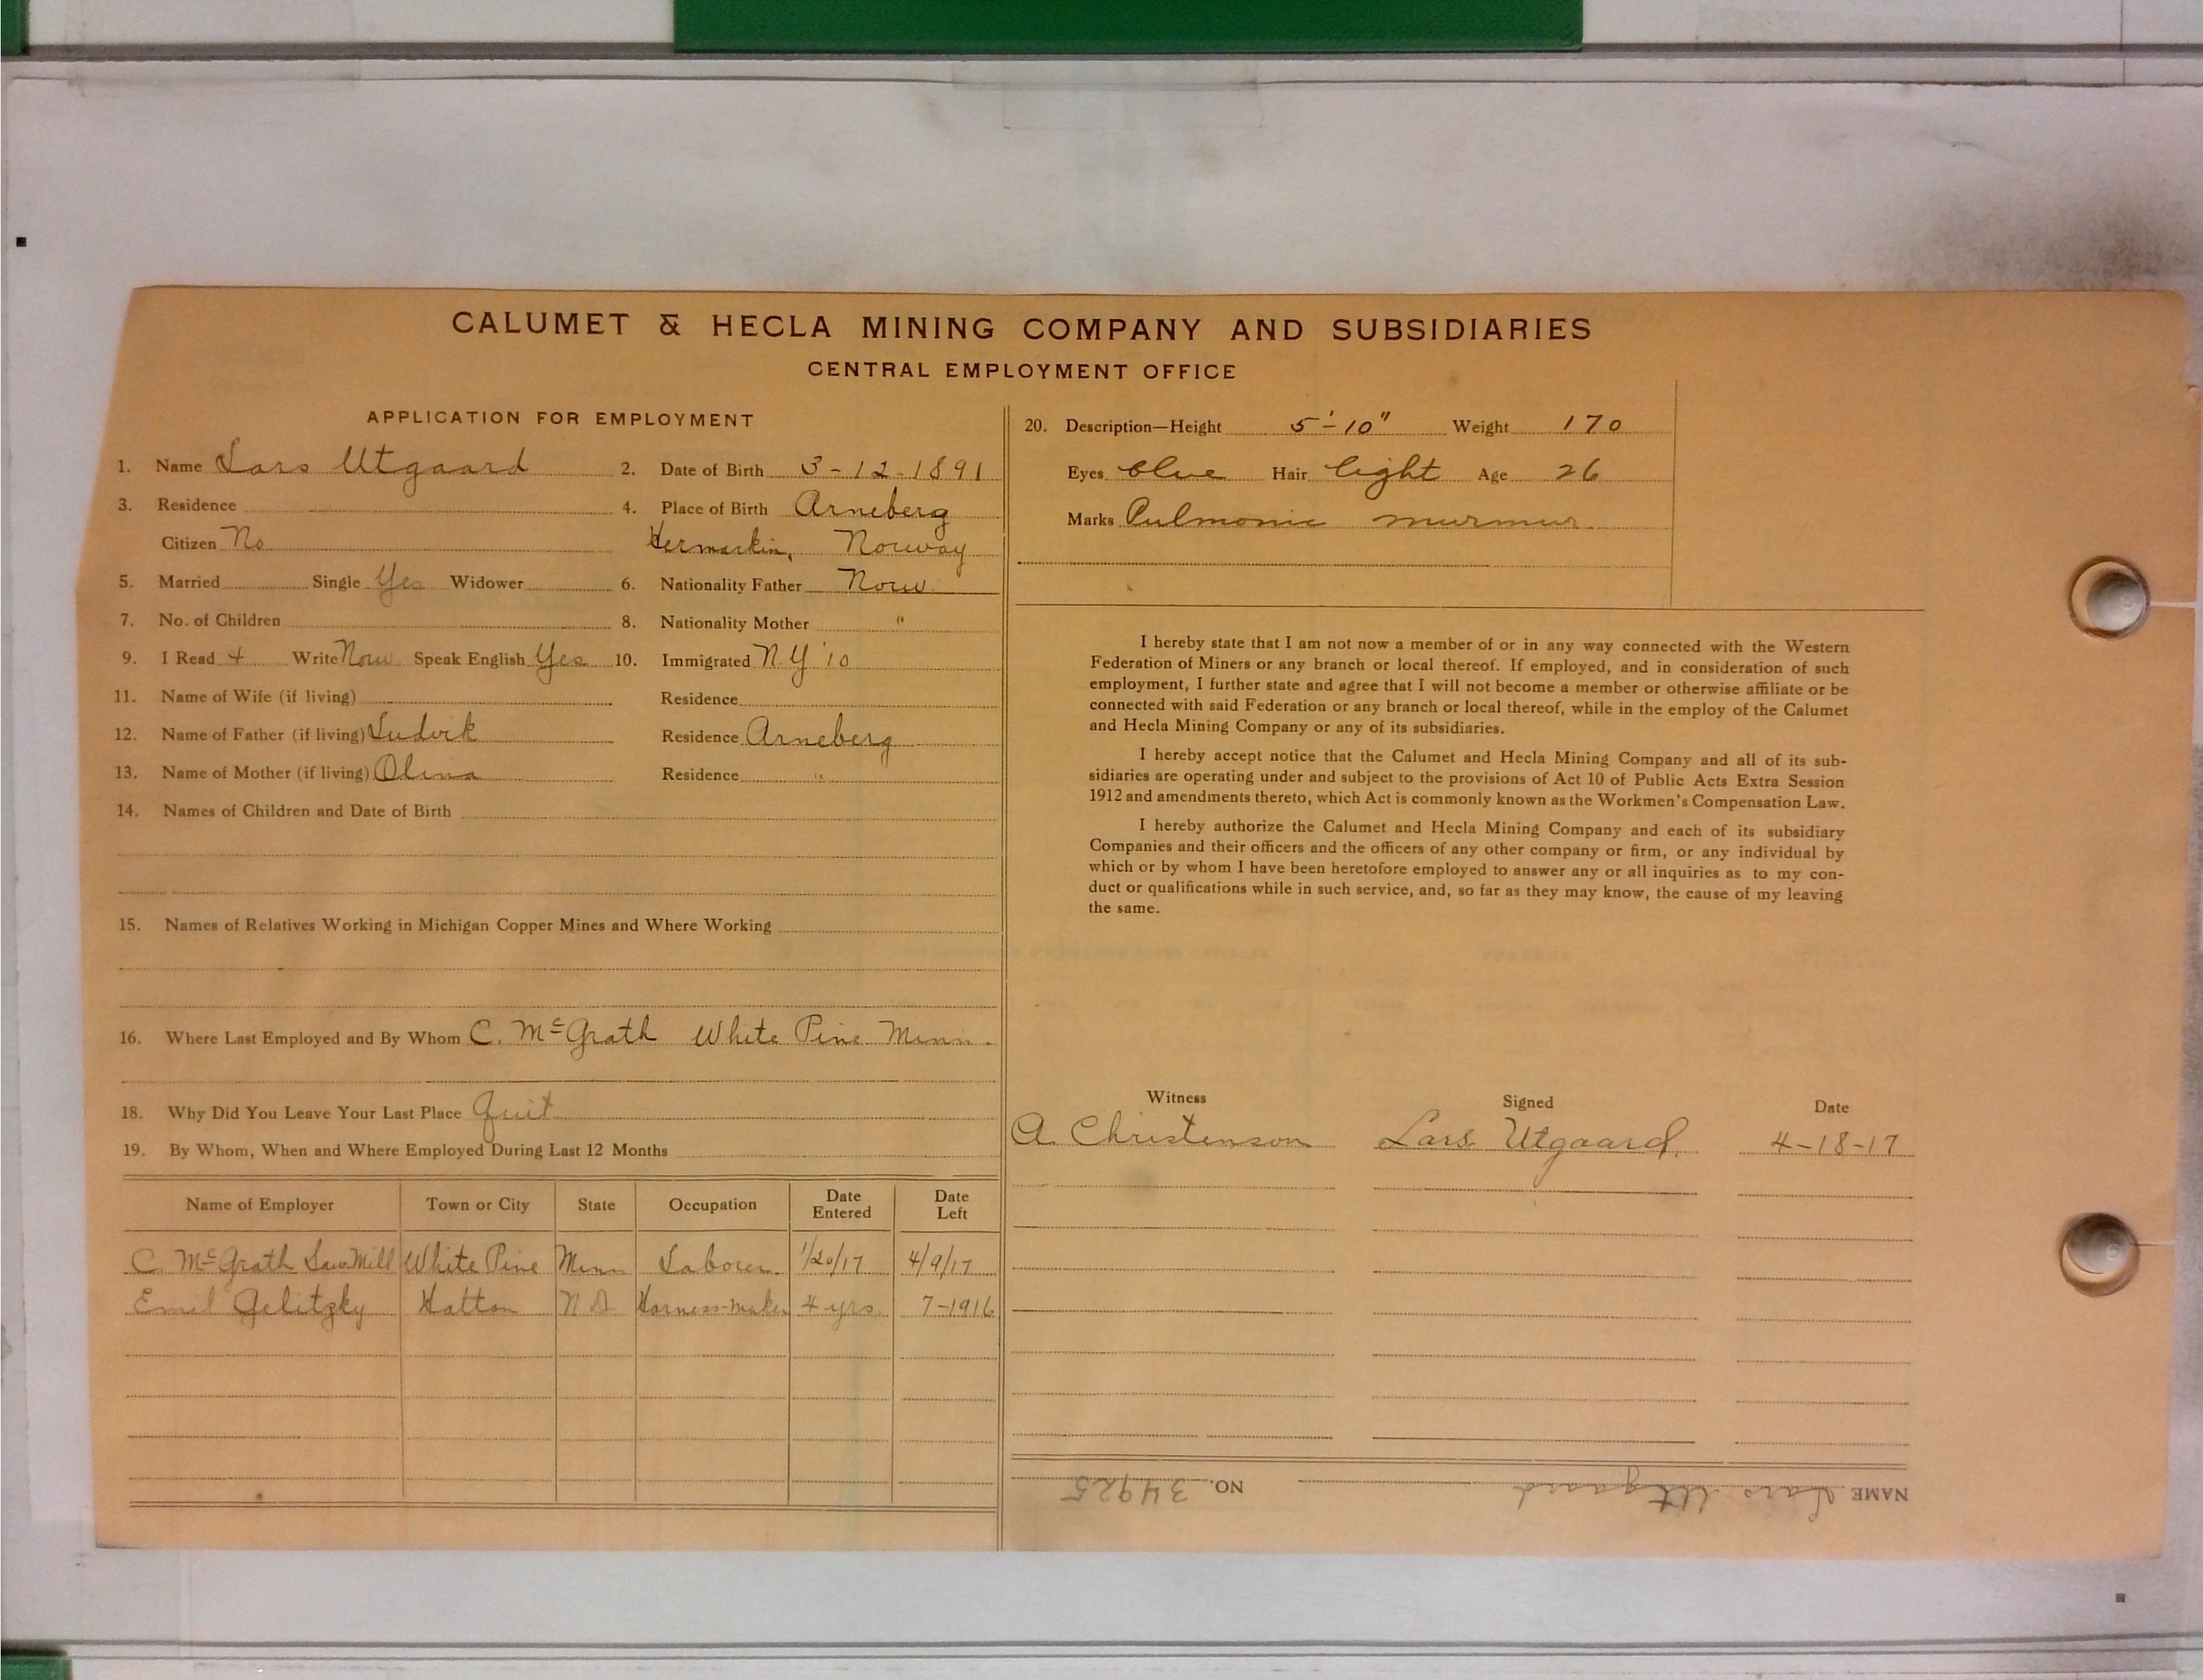 CALUMET & HECLA MINING COMPANY AND SUBSIDIARIES
CENTRAL EMPLOYMENT OFFICE
APPLICATION FOR EMPLOYMENT
1. Name Lars Utgaard 2. Date of Birth 3-12-1891
3. Residence 4. Place of Birth Arneberg
Citizen No Hermarkin, Norway
5. Married Single Yes Widower 6. Nationality Father Norw.
7. No. of Children 8. Nationality Mother "
9. I Read + Write Norw Speak English Yes 10. Immigrated N.Y '10
11. Name of Wife (if living) Residence
12. Name of Father (if living) Ludvik Residence Arneberg
13. Name of Mother (if living) Olina Residence "
14. Names of Children and Date of Birth
15. Names of Relatives Working in Michigan Copper Mines and Where Working
16. Where Last Employed and By Whom C. McGrath White Pine Minn.
18. Why Did You Leave Your Last Place Quit
19. By Whom, When and Where Employed During Last 12 Months
Name of Employer Town or City State Occupation Date Entered Date Left
C. McGrath Saw Mill White Pine Minn Laborer 1/20/17 4/9/17
Emil Gelitzky Hatton N D Harness-maker 4 yrs. 7-1916
20. Description—Height 5'-10" Weight 170
Eyes blue Hair light Age 26
Marks Pulmonic murmur
I hereby state that I am not now a member of or in any way connected with the Western
Federation of Miners or any branch or local thereof. If employed, and in consideration of such
employment, I further state and agree that I will not become a member or otherwise affiliate or be
connected with said Federation or any branch or local thereof, while in the employ of the Calumet
and Hecla Mining Company or any of its subsidiaries.
I hereby accept notice that the Calumet and Hecla Mining Company and all of its sub-
sidiaries are operating under and subject to the provisions of Act 10 of Public Acts Extra Session
1912 and amendments thereto, which Act is commonly known as the Workmen's Compensation Law.
I hereby authorize the Calumet and Hecla Mining Company and each of its subsidiary
Companies and their officers and the officers of any other company or firm, or any individual by
which or by whom I have been heretofore employed to answer any or all inquiries as to my con-
duct or qualifications while in such service, and, so far as they may know, the cause of my leaving
the same.
Witness Signed Date
A. Christenson Lars Utgaard. 4-18-17
NAME Lars Utgaard NO. 34925